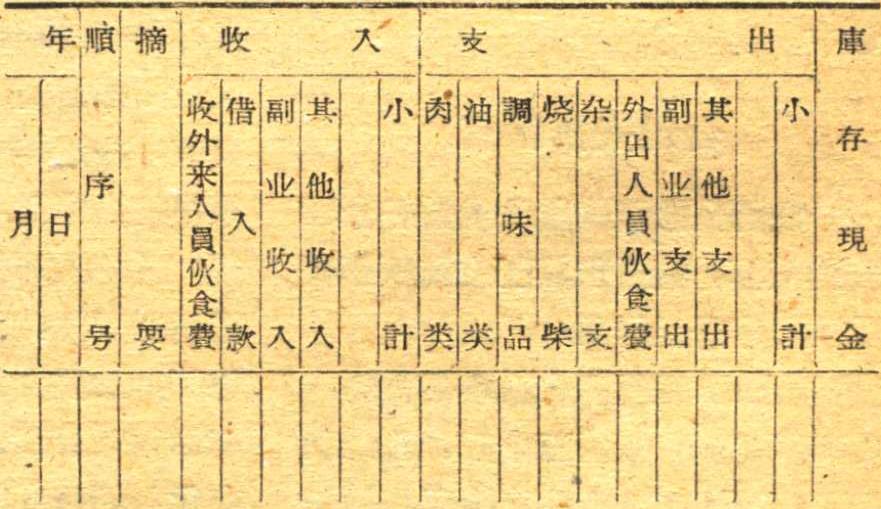 年
月
日
順序号
摘要
收入
收外来人員伙食費
借入款
副业收入
其他收入
小計
支出
肉类
油类
調味品
烧柴
杂支
外出人員伙食費
副业支出
其他支出
小計
庫存現金